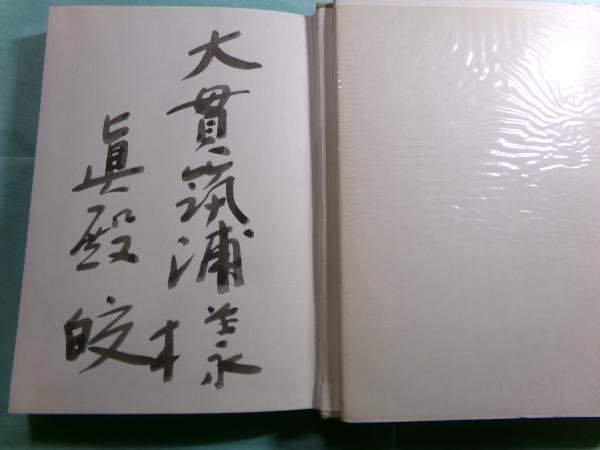 大貫筑浦様
眞殿皎